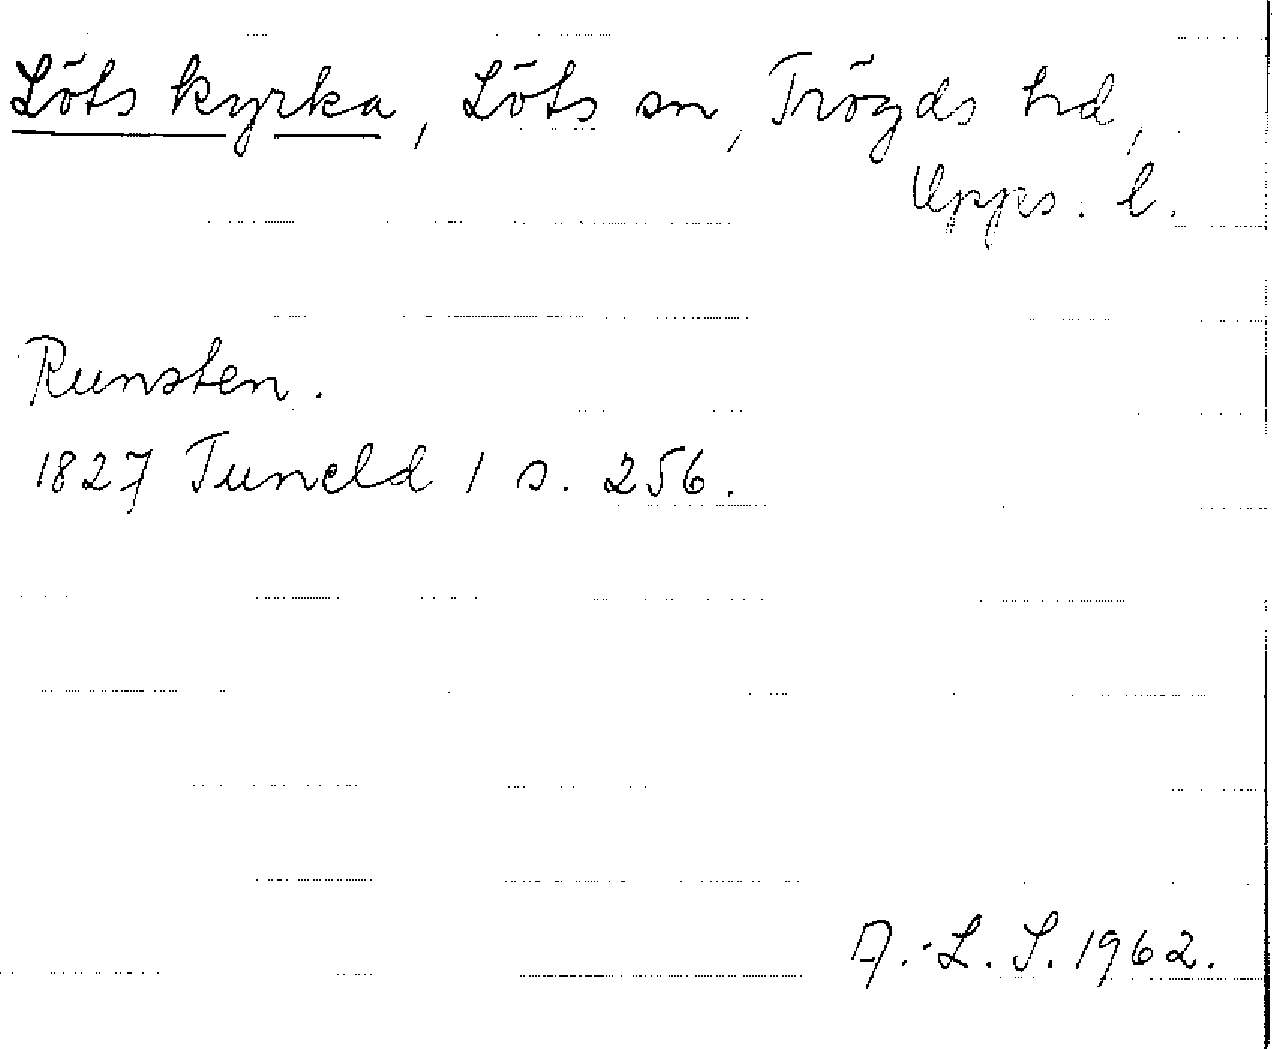 Löts kyrka, Löts sn, Trögds hd,
Upps. l.
Runsten.
1827 Tuneld 1 s. 256.
A.-L. S. 1962.